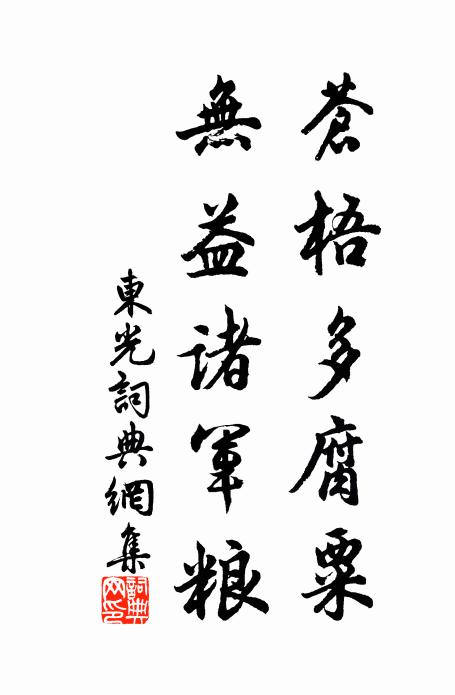 蒼梧多腐粟
無益諸軍粮
東光詞典網集
詞典網印